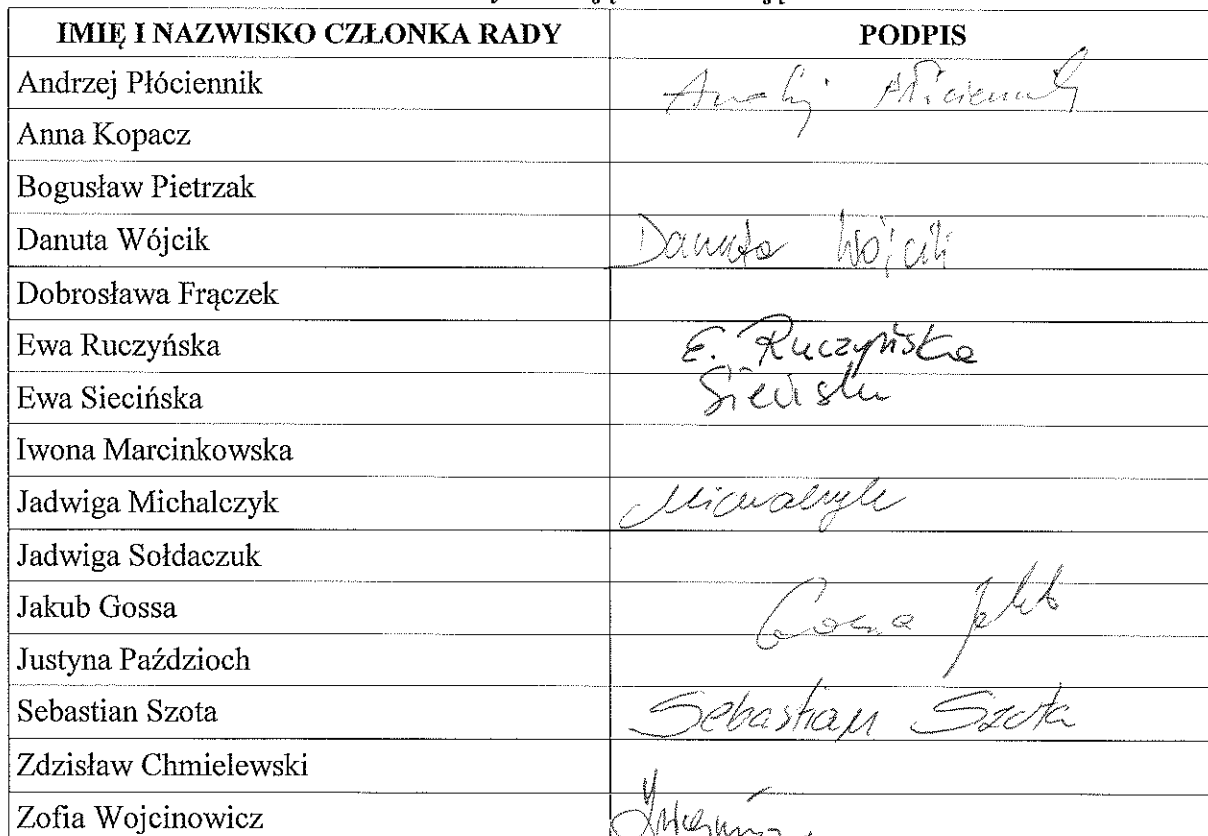 IMIĘ I NAZWISKO CZŁONKA RADY PODPIS
Andrzej Płóciennik
Anna Kopacz
Bogusław Pietrzak
Danuta Wójcik Danuta Wójcik
Dobrosława Frączek
Ewa Ruczyńska E. Ruczyńska
Ewa Siecińska
Iwona Marcinkowska
Jadwiga Michalczyk Michalczyk
Jadwiga Sołdaczuk
Jakub Gossa
Justyna Paździoch
Sebastian Szota Sebastian Szota
Zdzisław Chmielewski
Zofia Wojcinowicz